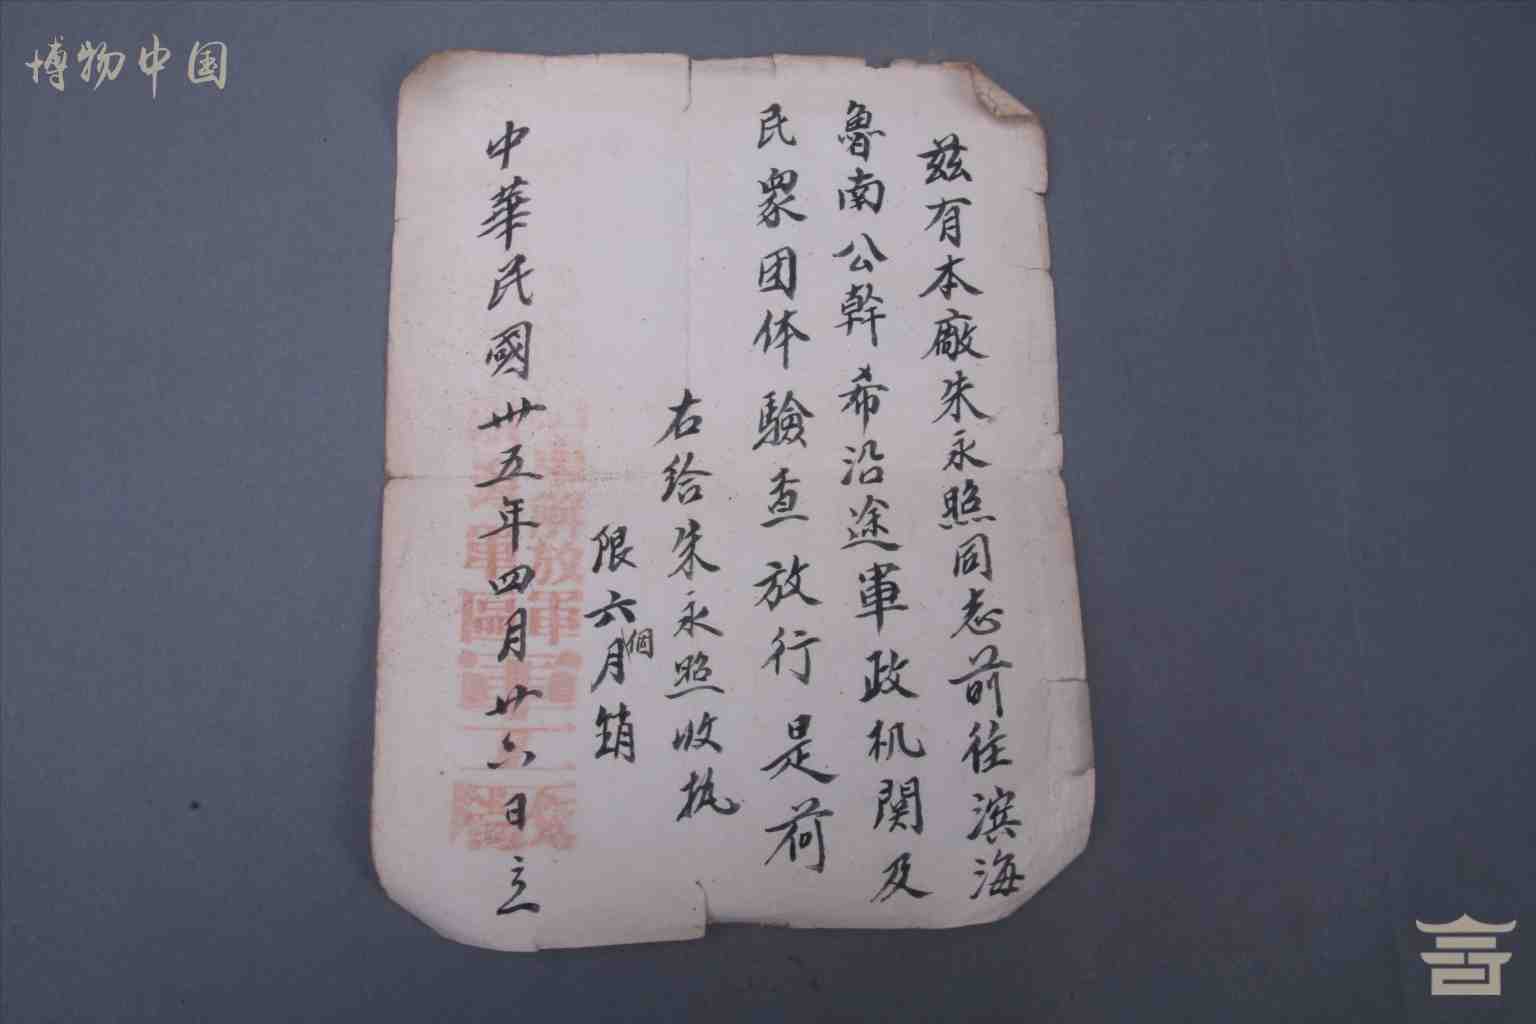 博物中国
兹有本廠朱永照同志前往滨海
魯南公幹希沿途軍政机関及
民眾团体驗查放行是荷
右给朱永照收执
限六個月銷
中華民國卅五年四月廿六日立
解放軍
軍區